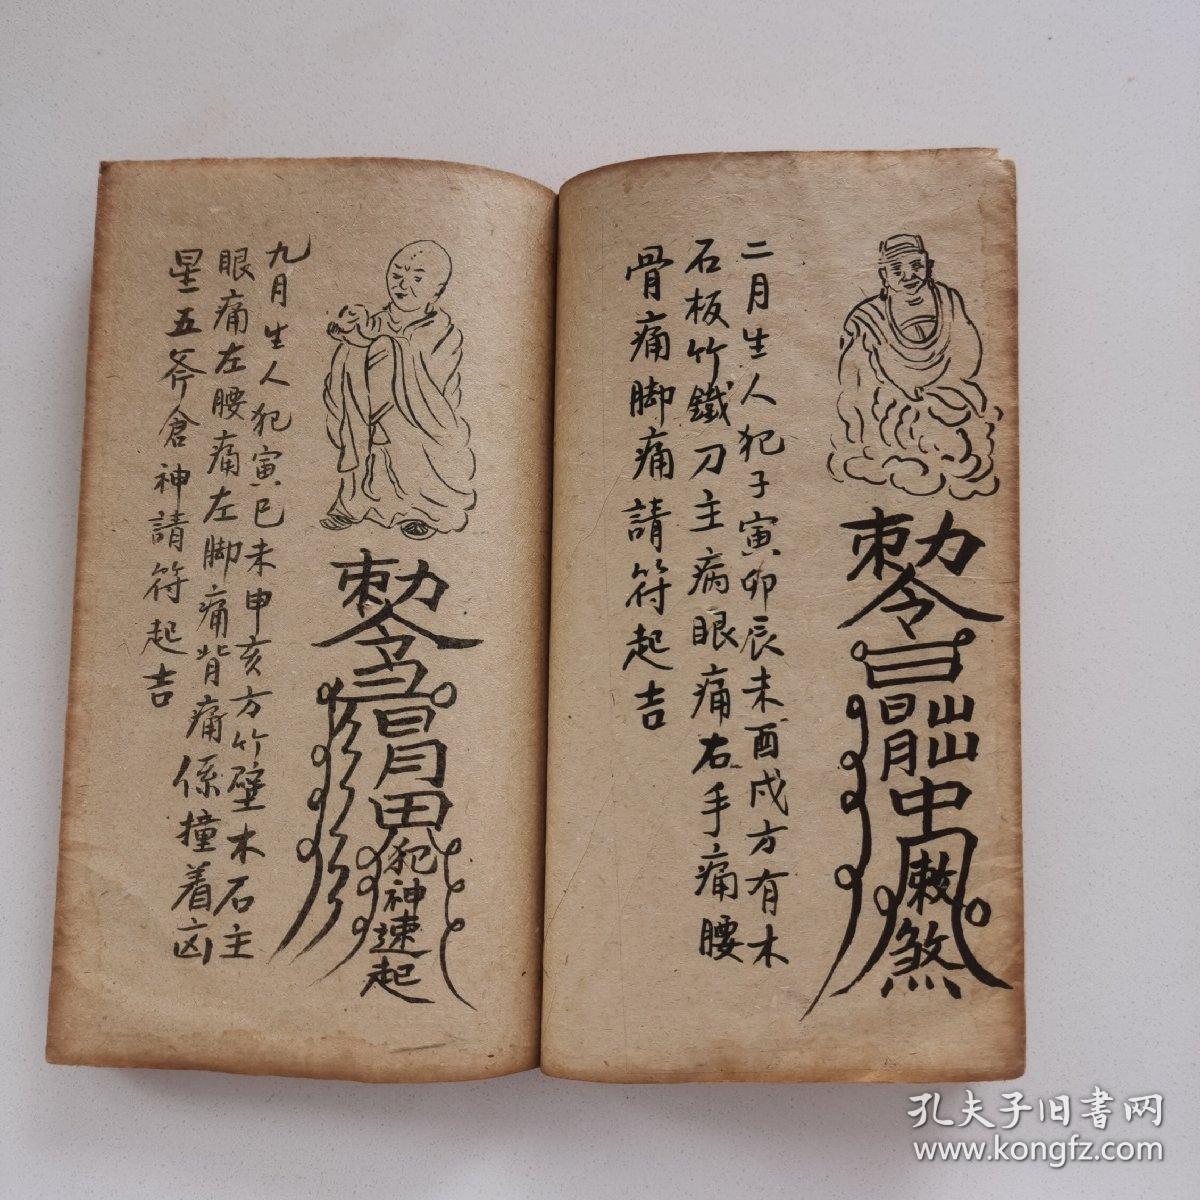 勅令
中
煞
二月生人犯子寅卯辰未酉戌方有木
石板竹鐵刀主病眼痛右手痛腰
骨痛脚痛請符起吉
勅令
犯神速起
九月生人犯寅巳未申亥方竹壁木石主
眼痛左腰痛左脚痛背痛係撞着凶
星五斧倉神請符起吉
孔夫子旧書网
www.kongfz.com